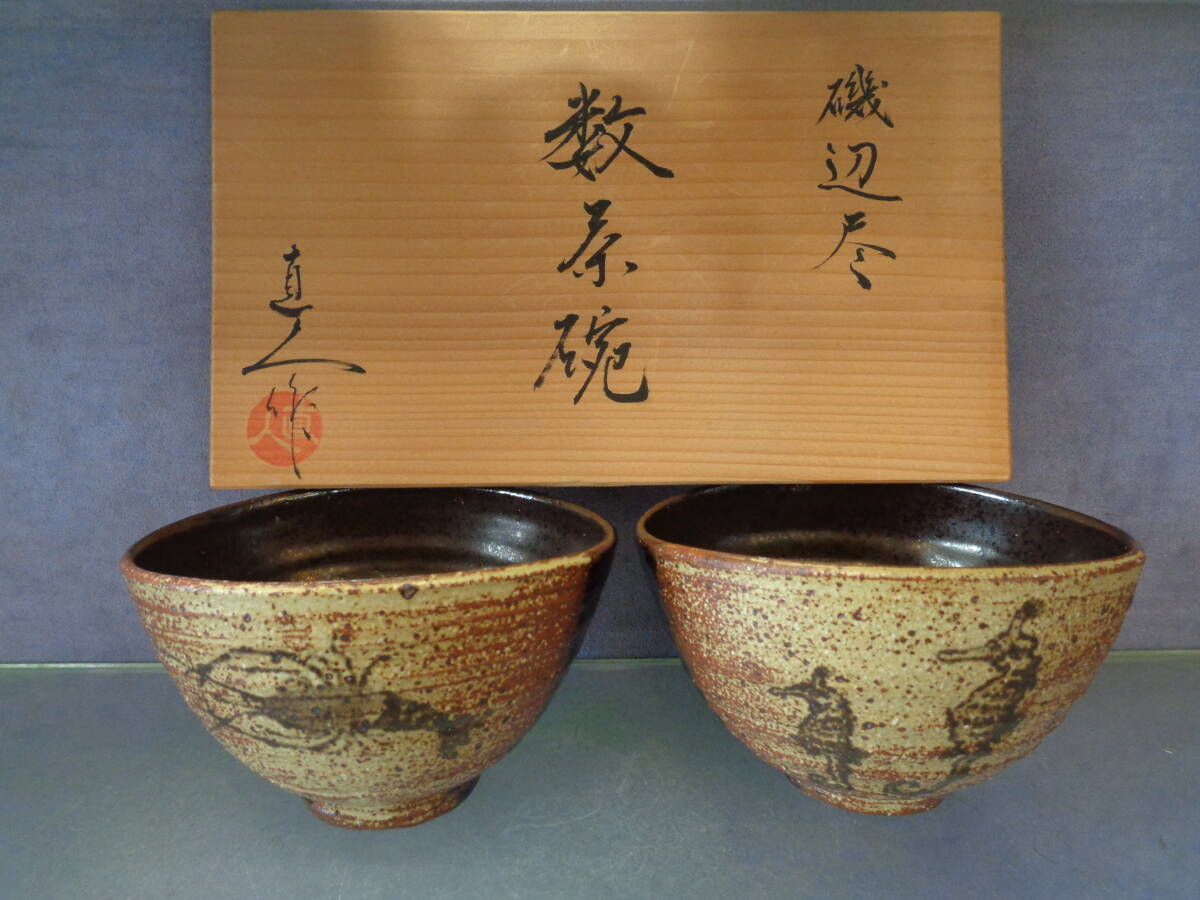 磯辺尽
数茶碗
直人作
直人